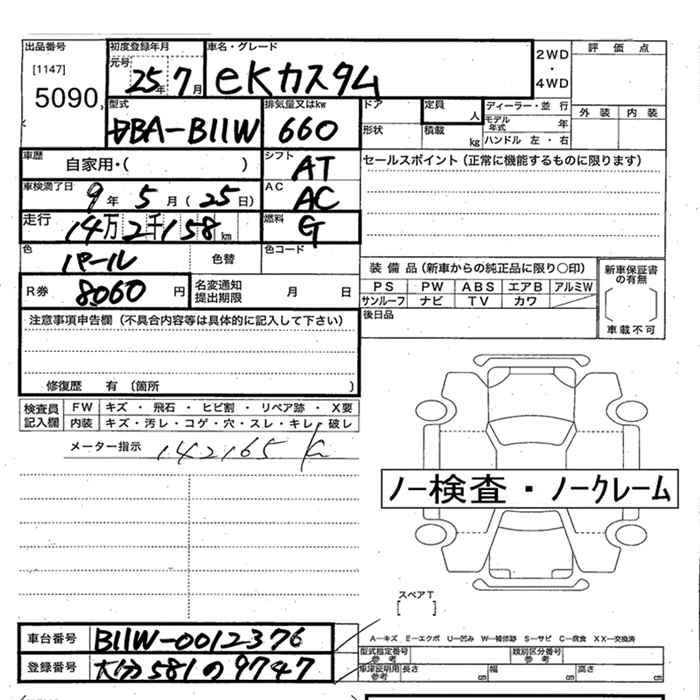 出品番号 初度登録年月 車名・グレード 2WD ・ 4WD 評価点
[1147] 元号 25年 7月 eKカスタム
5090 外装 内装
型式 排気量又はkw ドア 定員 人 ディーラー・並行
DBA-B11W 660 形状 積載 kg モデル年式 年
ハンドル 左・右
車歴 自家用・( ) シフト AT セールスポイント(正常に機能するものに限ります)
車検満了日 9年 5月(25日) AC AC
走行 14万2千158km 燃料 G
色 パール 色替 色コード
装備品(新車からの純正品に限り○印) 新車保証書の有無
R券 8060円 名変通知提出期限 月 日 PS PW ABS エアB アルミW
サンルーフ ナビ TV カワ
車載不可
注意事項申告欄(不具合内容等は具体的に記入して下さい) 後日品
修復歴 有(箇所 )
検査員記入欄 FW キズ・飛石・ヒビ割・リペア跡・X要
内装 キズ・汚レ・コゲ・穴・スレ・キレ・破レ
メーター指示 142165 K
ノー検査・ノークレーム
スペアT
[ ]
車台番号 B11W-0012376 A―キズ E―エクボ U―凹み W―補修跡 S―サビ C―腐食 XX―交換済
型式指定番号 参考 類別区分番号 参考
登録番号 大分581の9747 車庫証明用参考 長さ 幅 高さ